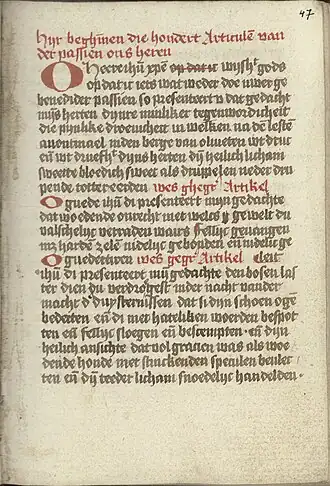 47
Hyr beghinen die hondert Articulē van
der passien ons heren
O heere ihū xpē op dat ic wijsh' gods
op dat ic iets wat weder doe uwer ge
benedider passien so presenteert u dat gedacht
mijs herten
die in welken na dē lestē
auontmael inden berge van oliueten
eñ herten dijn heilich licham
sweette bloedich sweet als druppelen neder dru
pende totter eerden Artikel
O guede ihū di presenteert mijn gedachte
dat woedende onrecht met welcs gewelt du
valschelijc verraden waers fellijc geuangen
eñ harde nidelijc gebonden eñ nidelijc ge
O guedertieren Artikel leit
ihū di presenteert mij gedachte den bosen las
ter dien du verdrogest inder nacht vander
macht d' duysternissen dat si dijn schoen ogē
bedecten eñ di met hateliken woerden bespot
ten eñ fellijc sloegen eñ bescimpten · eñ dijn
heilich ansichte dat vol gracien was als woe
dende honde met stinckenden speculen beulec
ten eñ dij teeder licham snoedelijc handelden ·